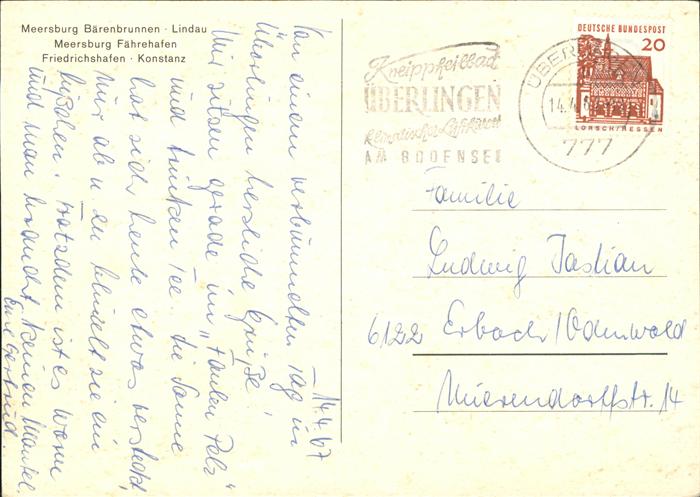 Meersburg Bärenbrunnen · Lindau
Meersburg Fährehafen
Friedrichshafen · Konstanz
14.4.67
Von einem verbummelten Tag in
Überlingen herzliche Grüße!
Wir sitzen gerade im „Faulen Pelz"
und trinken Tee. Die Sonne
hat sich heute etwas versteckt,
nur ab u. zu blinzelt sie ein
bißchen. Trotzdem ist es warm
und man braucht keinen Mantel.
Eure Gertrud.
Kneippheilbad
ÜBERLINGEN
klimatischer Luftkurort
AM BODENSEE
ÜBERLINGEN
14.4.
777
DEUTSCHE BUNDESPOST
20
LORSCH/HESSEN
Familie
Ludwig Jastian
6122 Erbach/Odenwald
Mierendorffstr. 14